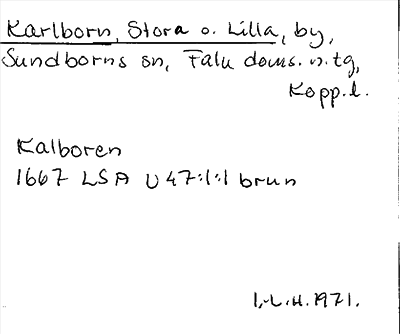 Karlborn, Stora o. Lilla, by,
Sundborns sn, Falu doms. n. tg,
Kopp. l.
Kalboren
1667 LSA U 47:1:1 brun
I.-L. H. 1971.